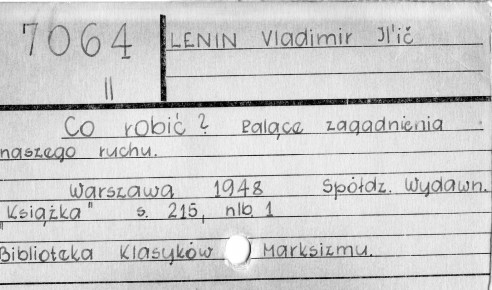 7064
II
LENIN Vladimir Il'ič
Co robić? Palące zagadnienia
naszego ruchu.
Warszawa 1948 Spółdz. Wydawn.
"Książka" s. 215, nlb. 1
Biblioteka Klasyków Marksizmu.